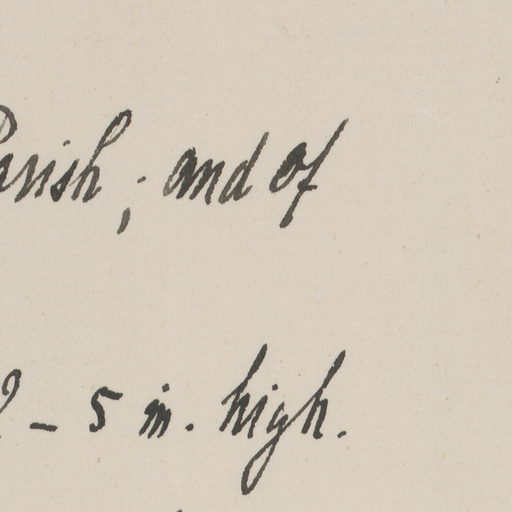 Parish; and of
- 5 in. high.